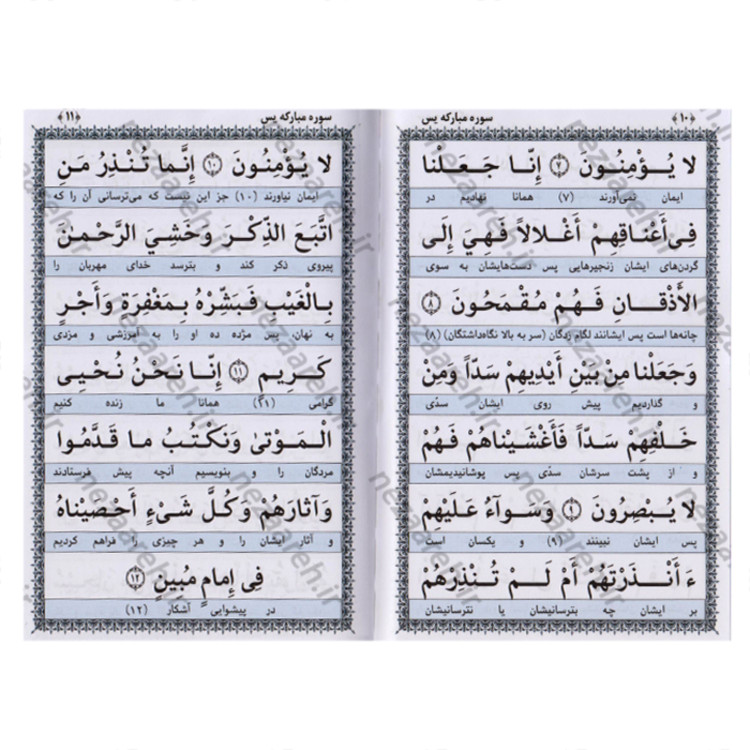 ﴿۱۰﴾ سوره مبارکه یس
لا یُـؤْمِنُـونَ ﴿۷﴾ إِنّـا جَعَـلْنا
ایمان نمی‌آورند (۷) همانا نهادیم در
فِی أَعْناقِهِمْ أَغْـلالاً فَـهِیَ إِلَی
گردن‌های ایشان زنجیرهایی پس دست‌هایشان به سوی
الأَذْقـانِ فَـهُمْ مُقْمَحُونَ ﴿۸﴾
چانه‌ها است پس ایشانند لگام زدگان (سر به بالا نگاه‌داشتگان) (۸)
وَ جَعَلْنا مِنْ بَیْنِ أَیْدِیهِمْ سَدّاً وَمِنْ
و گذاردیم پیش روی ایشان سدّی
خَـلْفِهِمْ سَـدّاً فَأَغْشَیْناهُمْ فَـهُمْ
و از پشت سرشان سدّی پس پوشانیدیمشان
لا یُـبْصِرُونَ ﴿۹﴾ وَسَـوآءٌ عَلَیْهِمْ
پس ایشان نبینند (۹) و یکسان است
ءَ أَنْـذَرْتَهُمْ أَمْ لَـمْ تُـنْذِرْهُمْ
بر ایشان چه بترسانیشان یا نترسانیشان
سوره مبارکه یس ﴿۱۱﴾
لا یُؤْمِنُونَ ﴿۱۰﴾ إِنَّما تُنْذِرُ مَنِ
ایمان نیاورند (۱۰) جز این نیست که می‌ترسانی آن را که
اتَّبَعَ الذِّکْـرَ وَ خَشِیَ الرَّحْمـٰنَ
پیروی ذکر کند و بترسد خدای مهربان را
بِالْغَیْبِ فَبَشِّرْهُ بِمَغْفِرَةٍ وَأَجْـرٍ
به نهان، پس مژده ده او را به آمرزشی و مزدی
کَـرِیمٍ ﴿۱۱﴾ إِنّـا نَحْنُ نُحْیِی
گرامی (۱۱) همانا ما زنده کنیم
الْـمَوْتیٰ وَنَکْتُبُ ما قَدَّمُوا
مردگان را و بنویسیم آنچه پیش فرستادند
وَآثارَهُمْ وَکُلَّ شَیْءٍ أَحْصَیْناهُ
و آثار ایشان را و هر چیزی را فراهم کردیم
فِی إِمامٍ مُبِینٍ ﴿۱۲﴾
در پیشوایی آشکار (۱۲)
nezaareh.ir